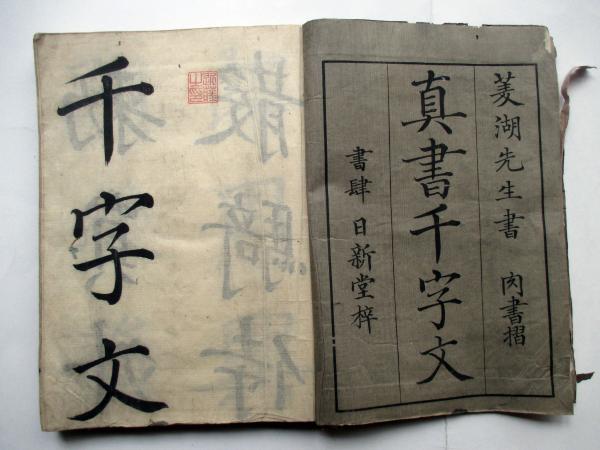 菱湖先生書 肉書摺
真書千字文
書肆 日新堂梓
千字文
散騎侍